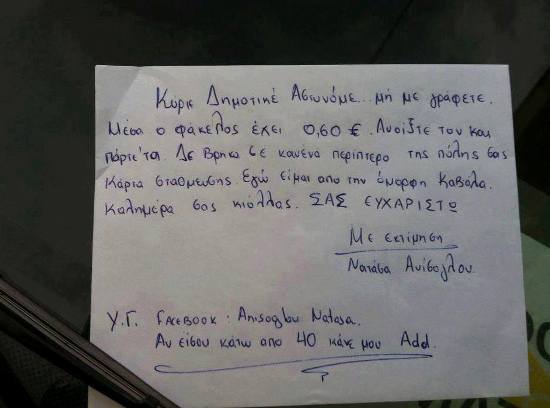 Κύριε Δημοτικέ Αστυνόμε... μή με γράφετε.
Μέσα ο φάκελος έχει 0,60 €. Ανοίξτε τον και
πάρτε'τα. Δε βρήκα σε κανένα περίπτερο της πόλης σας
κάρτα στάθμευσης. Εγώ είμαι απο την όμορφη Καβάλα.
Καλημέρα σας κιόλλας. ΣΑΣ ΕΥΧΑΡΙΣΤΩ
Με εκτίμηση
Νατάσα Ανίσογλου.
Υ.Γ. FACEBOOK: Anisoglou Natasa.
Αν είσαι κάτω απο 40 κάνε μου Add.